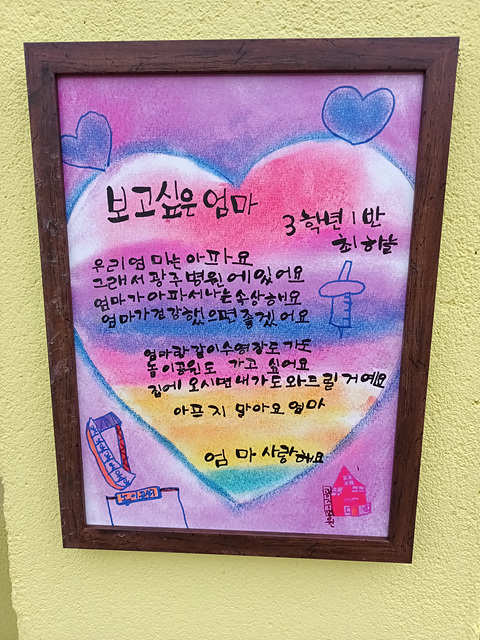 보고싶은 엄마
3학년 1반
최하늘
우리 엄마는 아파요
그래서 광주 병원에 있어요
엄마가 아파서 나는 속상해요
엄마가 건강했으면 좋겠어요
엄마랑 같이 수영장도 가고
놀이공원도 가고 싶어요
집에 오시면 내가 도와드릴거예요
아프지 말아요 엄마
엄마 사랑해요